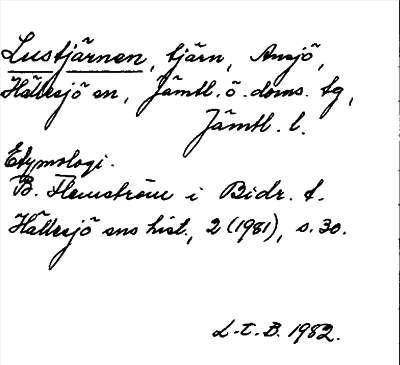 Lustjärnen, tjärn, Ansjö,
Hällesjö sn, Jämtl. ö. doms. tg,
Jämtl. l.
Etymologi.
B. Flemström i Bidr. t.
Hällesjö sns hist., 2 (1981), s. 30.
L.t.B. 1982.